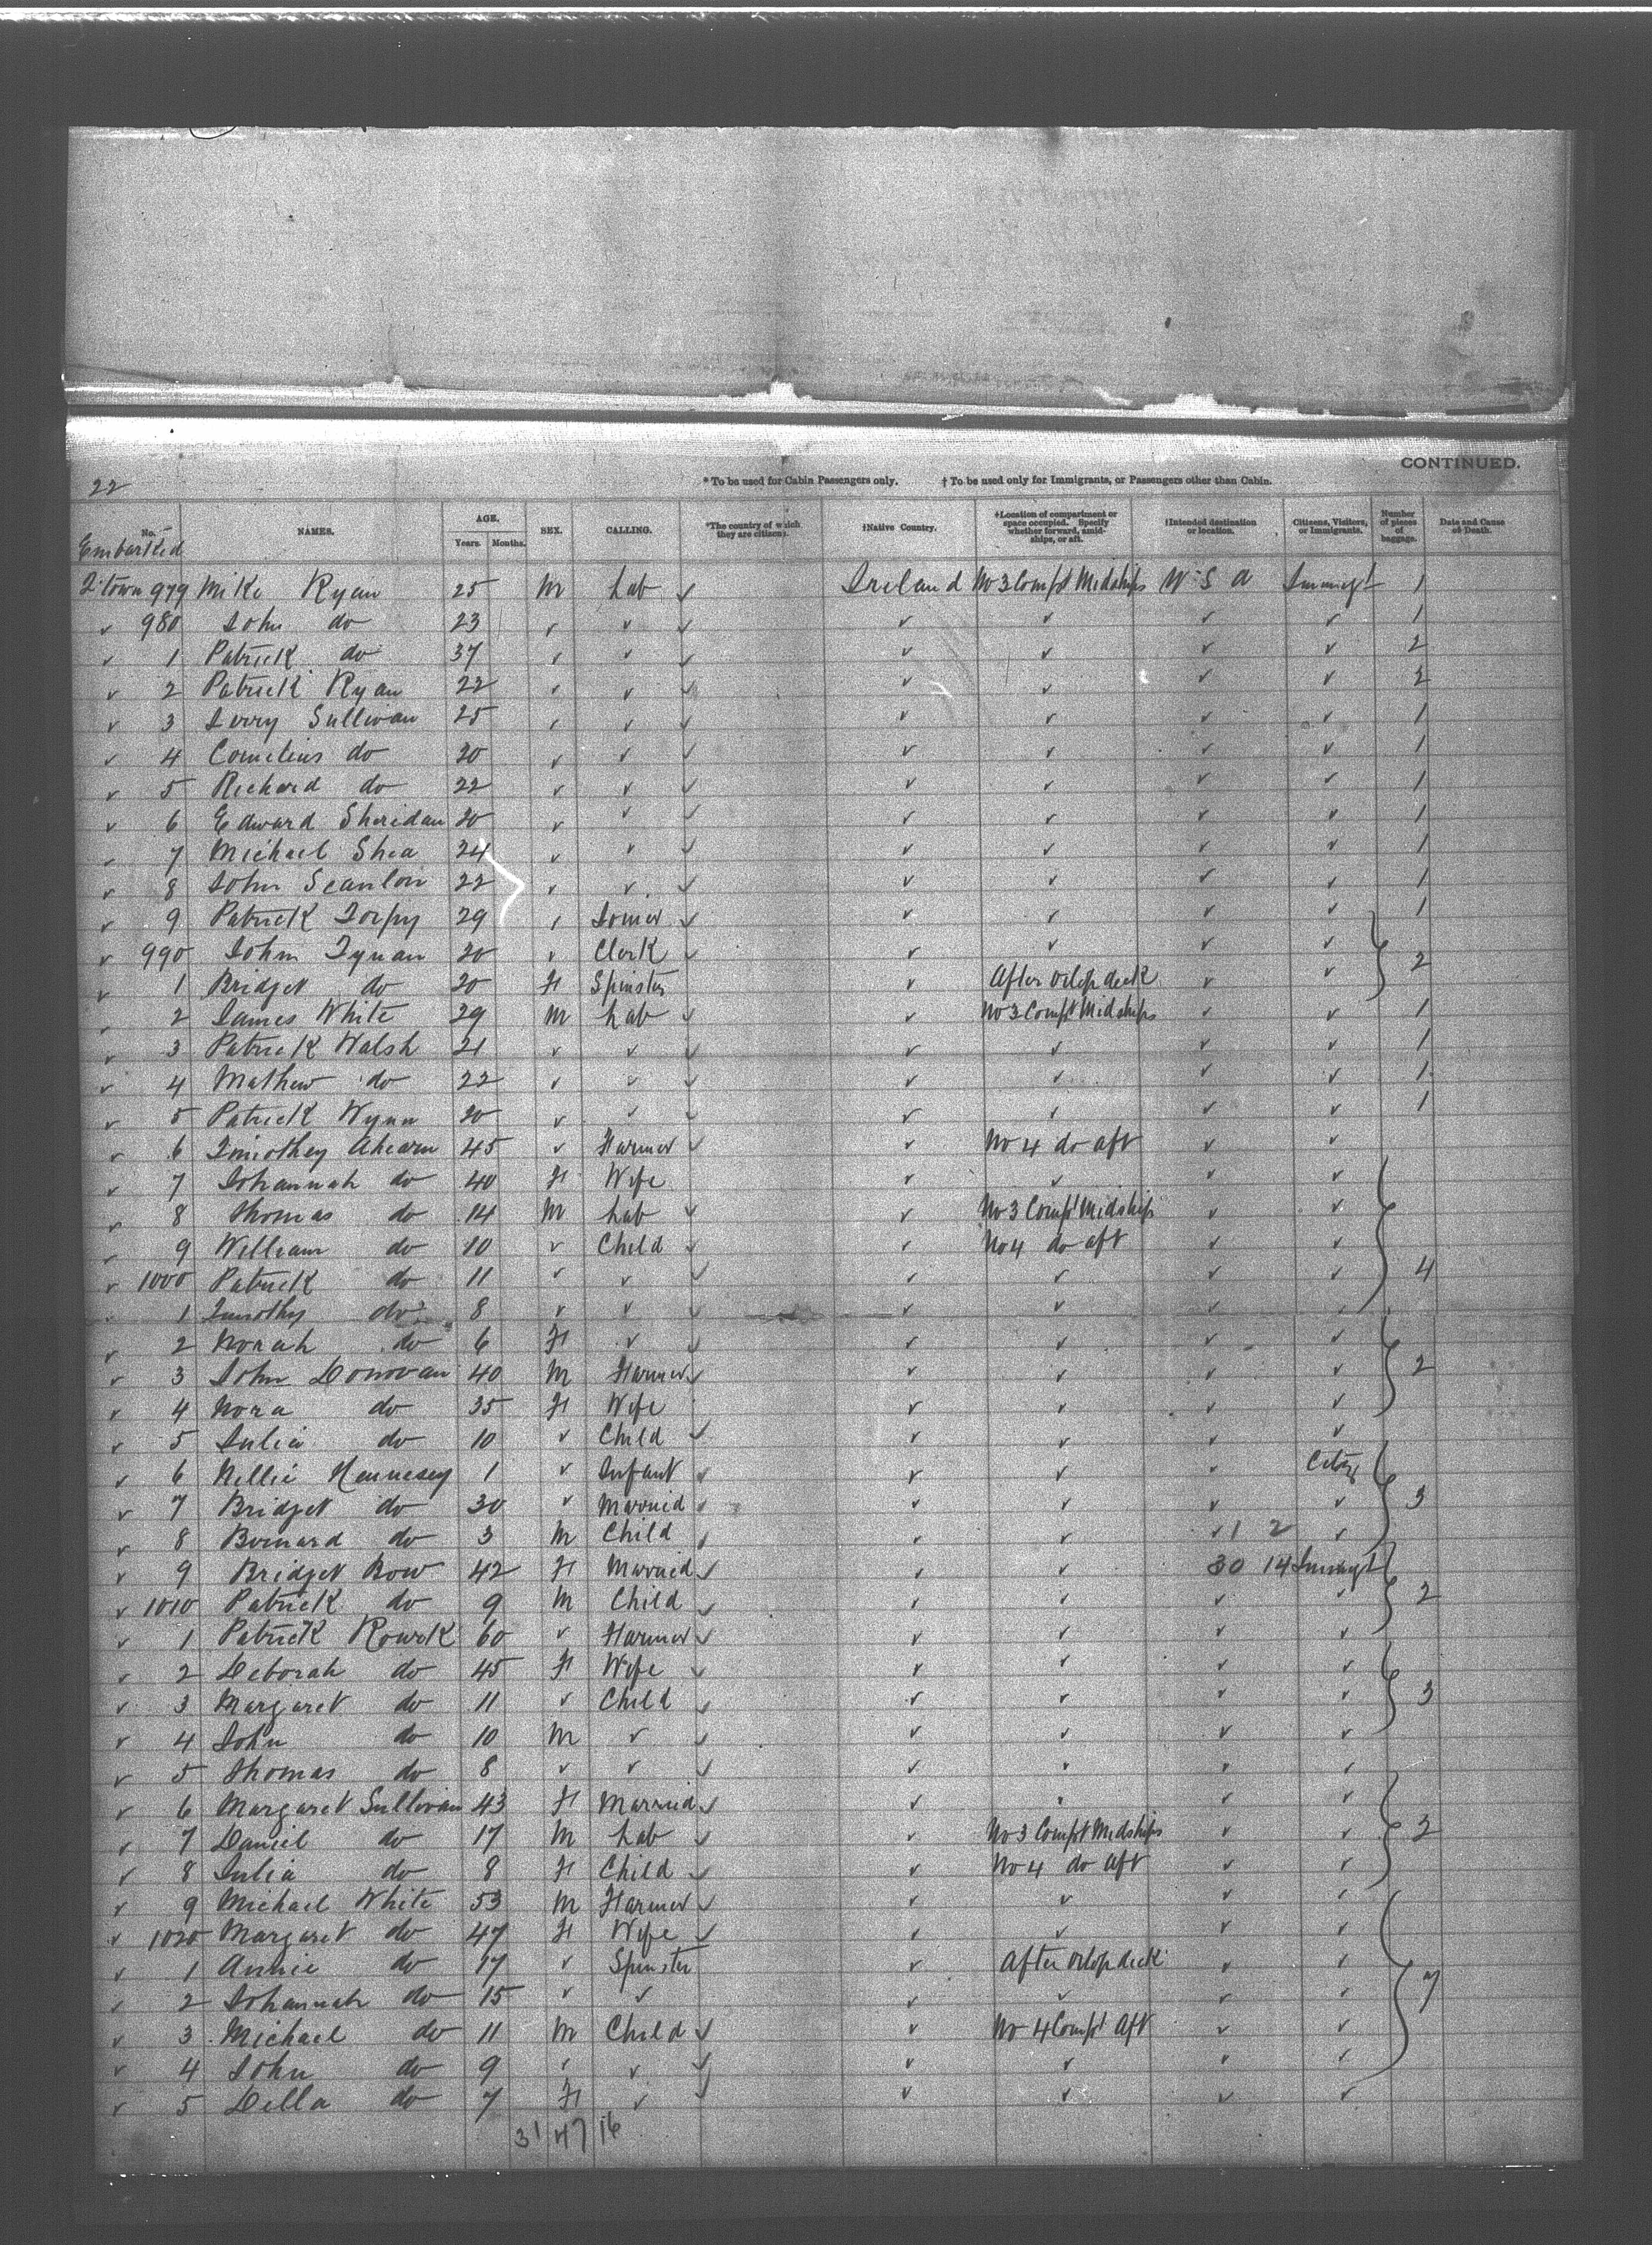 CONTINUED.
22
* To be used for Cabin Passengers only. † To be used only for Immigrants, or Passengers other than Cabin.
No. NAMES. AGE. Years. Months. SEX. CALLING. *The country of which they are citizens. †Native Country. †Location of compartment or space occupied. Specify whether forward, amidships, or aft. †Intended destination or location. Citizens, Visitors, or Immigrants. Number of pieces of baggage. Date and Cause of Death.
Embarked
Q'town 979 Mike Ryan 25 M Lab ✓ Ireland No 3 Compt Midships U S A Immigt 1
✓ 980 John do 23 ✓ ✓ ✓ ✓ ✓ ✓ ✓ 1
✓ 1 Patrick do 37 ✓ ✓ ✓ ✓ ✓ ✓ ✓ 2
✓ 2 Patrick Ryan 22 ✓ ✓ ✓ ✓ ✓ ✓ ✓ 2
✓ 3 Jerry Sullivan 25 ✓ ✓ ✓ ✓ ✓ ✓ ✓ 1
✓ 4 Cornelius do 20 ✓ ✓ ✓ ✓ ✓ ✓ ✓ 1
✓ 5 Richard do 22 ✓ ✓ ✓ ✓ ✓ ✓ ✓ 1
✓ 6 Edward Sheridan 20 ✓ ✓ ✓ ✓ ✓ ✓ ✓ 1
✓ 7 Michael Shea 24 ✓ ✓ ✓ ✓ ✓ ✓ ✓ 1
✓ 8 John Scanlon 22 ✓ ✓ ✓ ✓ ✓ ✓ ✓ 1
✓ 9 Patrick Torpy 29 ✓ Joiner ✓ ✓ ✓ ✓ ✓ 1
✓ 990 John Tynan 20 ✓ Clerk ✓ ✓ ✓ ✓ ✓
✓ 1 Bridget do 20 F Spinster ✓ After orlop deck ✓ ✓ 2
✓ 2 James White 29 M Lab ✓ ✓ No 3 Compt Midships ✓ ✓ 1
✓ 3 Patrick Walsh 21 ✓ ✓ ✓ ✓ ✓ ✓ ✓ 1
✓ 4 Mathew do 22 ✓ ✓ ✓ ✓ ✓ ✓ ✓ 1
✓ 5 Patrick Wynn 20 ✓ ✓ ✓ ✓ ✓ ✓ ✓ 1
✓ 6 Timothey Ahearn 45 ✓ Farmer ✓ ✓ No 4 do aft ✓ ✓
✓ 7 Johannah do 40 F Wife ✓ ✓ ✓ ✓
✓ 8 Thomas do 14 M Lab ✓ ✓ No 3 Compt Midship ✓ ✓
✓ 9 William do 10 ✓ Child ✓ ✓ No 4 do aft ✓ ✓
✓ 1000 Patrick do 11 ✓ ✓ ✓ ✓ ✓ ✓ ✓ 4
✓ 1 Timothy do 8 ✓ ✓ ✓ ✓ ✓ ✓ ✓
✓ 2 Norah do 6 F ✓ ✓ ✓ ✓ ✓ ✓
✓ 3 John Donovan 40 M Farmer ✓ ✓ ✓ ✓ ✓ 2
✓ 4 Nora do 35 F Wife ✓ ✓ ✓ ✓
✓ 5 Julia do 10 ✓ Child ✓ ✓ ✓ ✓ ✓
✓ 6 Nellie Hennesey 1 ✓ Infant ✓ ✓ ✓ ✓ Citz
✓ 7 Bridget do 30 ✓ Married ✓ ✓ ✓ ✓ ✓ 3
✓ 8 Bernard do 3 M Child ✓ ✓ ✓ ✓ 1 2 ✓
✓ 9 Bridget Bow 42 F Married ✓ ✓ ✓ 30 14 Immigt
✓ 1010 Patrick do 9 M Child ✓ ✓ ✓ ✓ ✓ 2
✓ 1 Patrick Rourk 60 ✓ Farmer ✓ ✓ ✓ ✓ ✓
✓ 2 Deborah do 45 F Wife ✓ ✓ ✓ ✓ ✓
✓ 3 Margaret do 11 ✓ Child ✓ ✓ ✓ ✓ ✓ 3
✓ 4 John do 10 M ✓ ✓ ✓ ✓ ✓ ✓
✓ 5 Thomas do 8 ✓ ✓ ✓ ✓ ✓ ✓ ✓
✓ 6 Margaret Sullivan 43 F Married ✓ ✓ ✓ ✓ ✓
✓ 7 Daniel do 17 M Lab ✓ ✓ No 3 Compt Midships ✓ ✓ 3
✓ 8 Julia do 8 F Child ✓ ✓ No 4 do aft ✓ ✓
✓ 9 Michael White 53 M Farmer ✓ ✓ ✓ ✓ ✓
✓ 1020 Margaret do 47 F Wife ✓ ✓ ✓ ✓ ✓
✓ 1 Annie do 17 ✓ Spinster ✓ After orlop deck ✓ ✓
✓ 2 Johannah do 15 ✓ ✓ ✓ ✓ ✓ ✓ 7
✓ 3 Michael do 11 M Child ✓ ✓ No 4 Compt Aft ✓ ✓
✓ 4 John do 9 ✓ ✓ ✓ ✓ ✓ ✓ ✓
✓ 5 Della do 7 F ✓ ✓ ✓ ✓ ✓ ✓
31 47 16